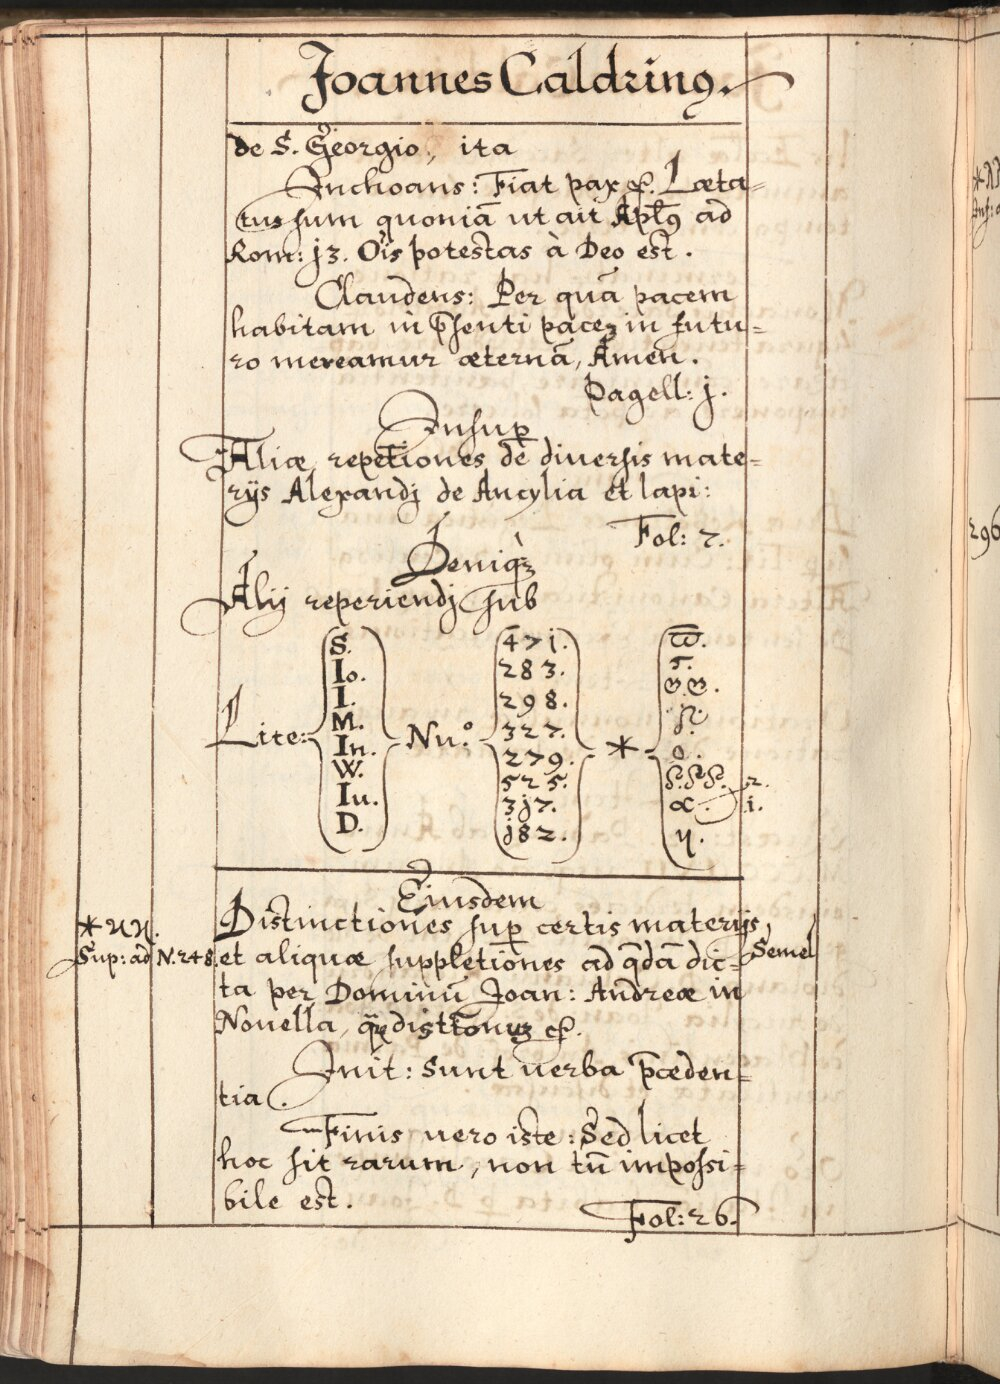 Joannes Caldrinꝰ.
de S. Georgio, ita
Inchoans: Fiat pax &c. Læta=
tus sum quoniã ut ait Apl̃ꝰ ad
Rom: j3. Oĩs potestas à Deo est.
Claudens: Per quã pacem
habitam in p̃senti pacez in futu=
ro mereamur æternã, Amen.
Pagell: j.
Insuꝑ
Aliæ repetiones de diuersis mate=
rijs Alexandj de Ancylia et lapi:
Fol: 7.
Deniqꝫ
Alij reperiendj sub
Lite:
S.
Io.
I.
M.
In.
W.
Iu.
D.
Nu:o
471.
283.
298.
327.
279.
525.
3j7.
j82.
*
o.
2.
α. i.
η.
Eiusdem
Distinctiones suꝑ certis materijs,
et aliquæ suppletiones ad q̃dã dic=
ta per Dominũ Joan: Andreæ in
Nouella, distionuz &c.
Init: Sunt uerba p̃ceden=
tia.
Finis uero iste: Sed licet
hoc sit rarum, non tñ impossi=
bile est.
Fol: 26.
* nn.
Sup: ad N. 248.
Semel
296